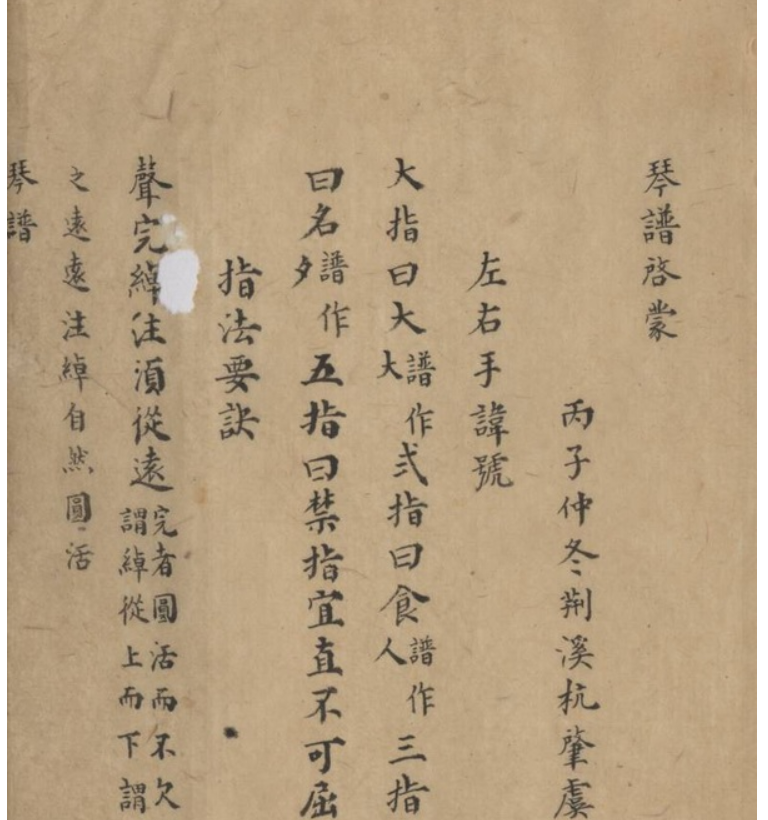 琴譜啓蒙
丙子仲冬荆溪杭肇虞
左右手諱號
大指曰大譜作大弍指曰食譜作人三指
曰名譜作夕五指曰禁指宜直不可屈
指法要訣
聲完綽注湏從遠完者圓活而不欠謂綽從上而下謂
之遠遠注綽自然圓活
琴譜